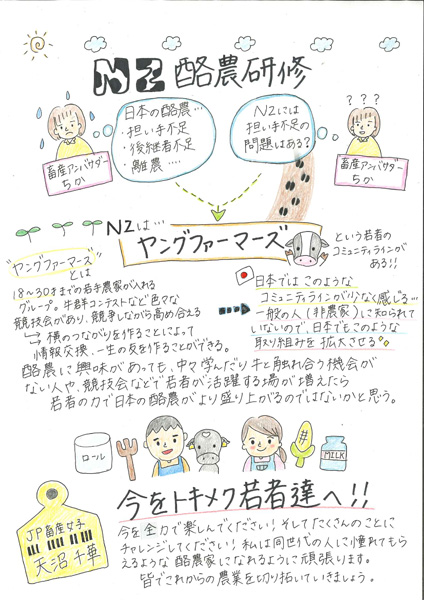 NZ 酪農研修
日本の酪農…
・担い手不足
・後継者不足
・離農 ……
NZには
担い手不足の
問題はある?
? ? ?
畜産アンバサダー
ちか
畜産アンバサダー
ちか
NZは…
ヤングファーマーズ
という若者の
コミュニティラインが
ある!!
"ヤングファーマーズ"
とは
18~30才までの若手農家が入れる
グループ。牛群コンテストなど色々な
競技会があり、競争しながら高め合える
↳ 横のつながりを作ることによって
情報交換、一生の友を作ることができる。
日本ではこのような
コミュニティラインが少なく感じる…
一般の人(非農家)に知られて
いないので、日本でもこのような
取り組みを拡大させる。
酪農に興味があっても、中々学んだり牛と触れ合う機会が
ない人や、競技会などで若者が活躍する場が増えたら
若者の力で日本の酪農がより盛り上がるのではないかと思う。
ロール
MILK
今をトキメク若者達へ!!
JP畜産女子
天沼千華
今を全力で楽しんでください!そしてたくさんのことに
チャレンジしてください!私は同世代の人に憧れてもら
えるような酪農家になれるように頑張ります。
皆でこれからの農業を切り拓いていきましょう。